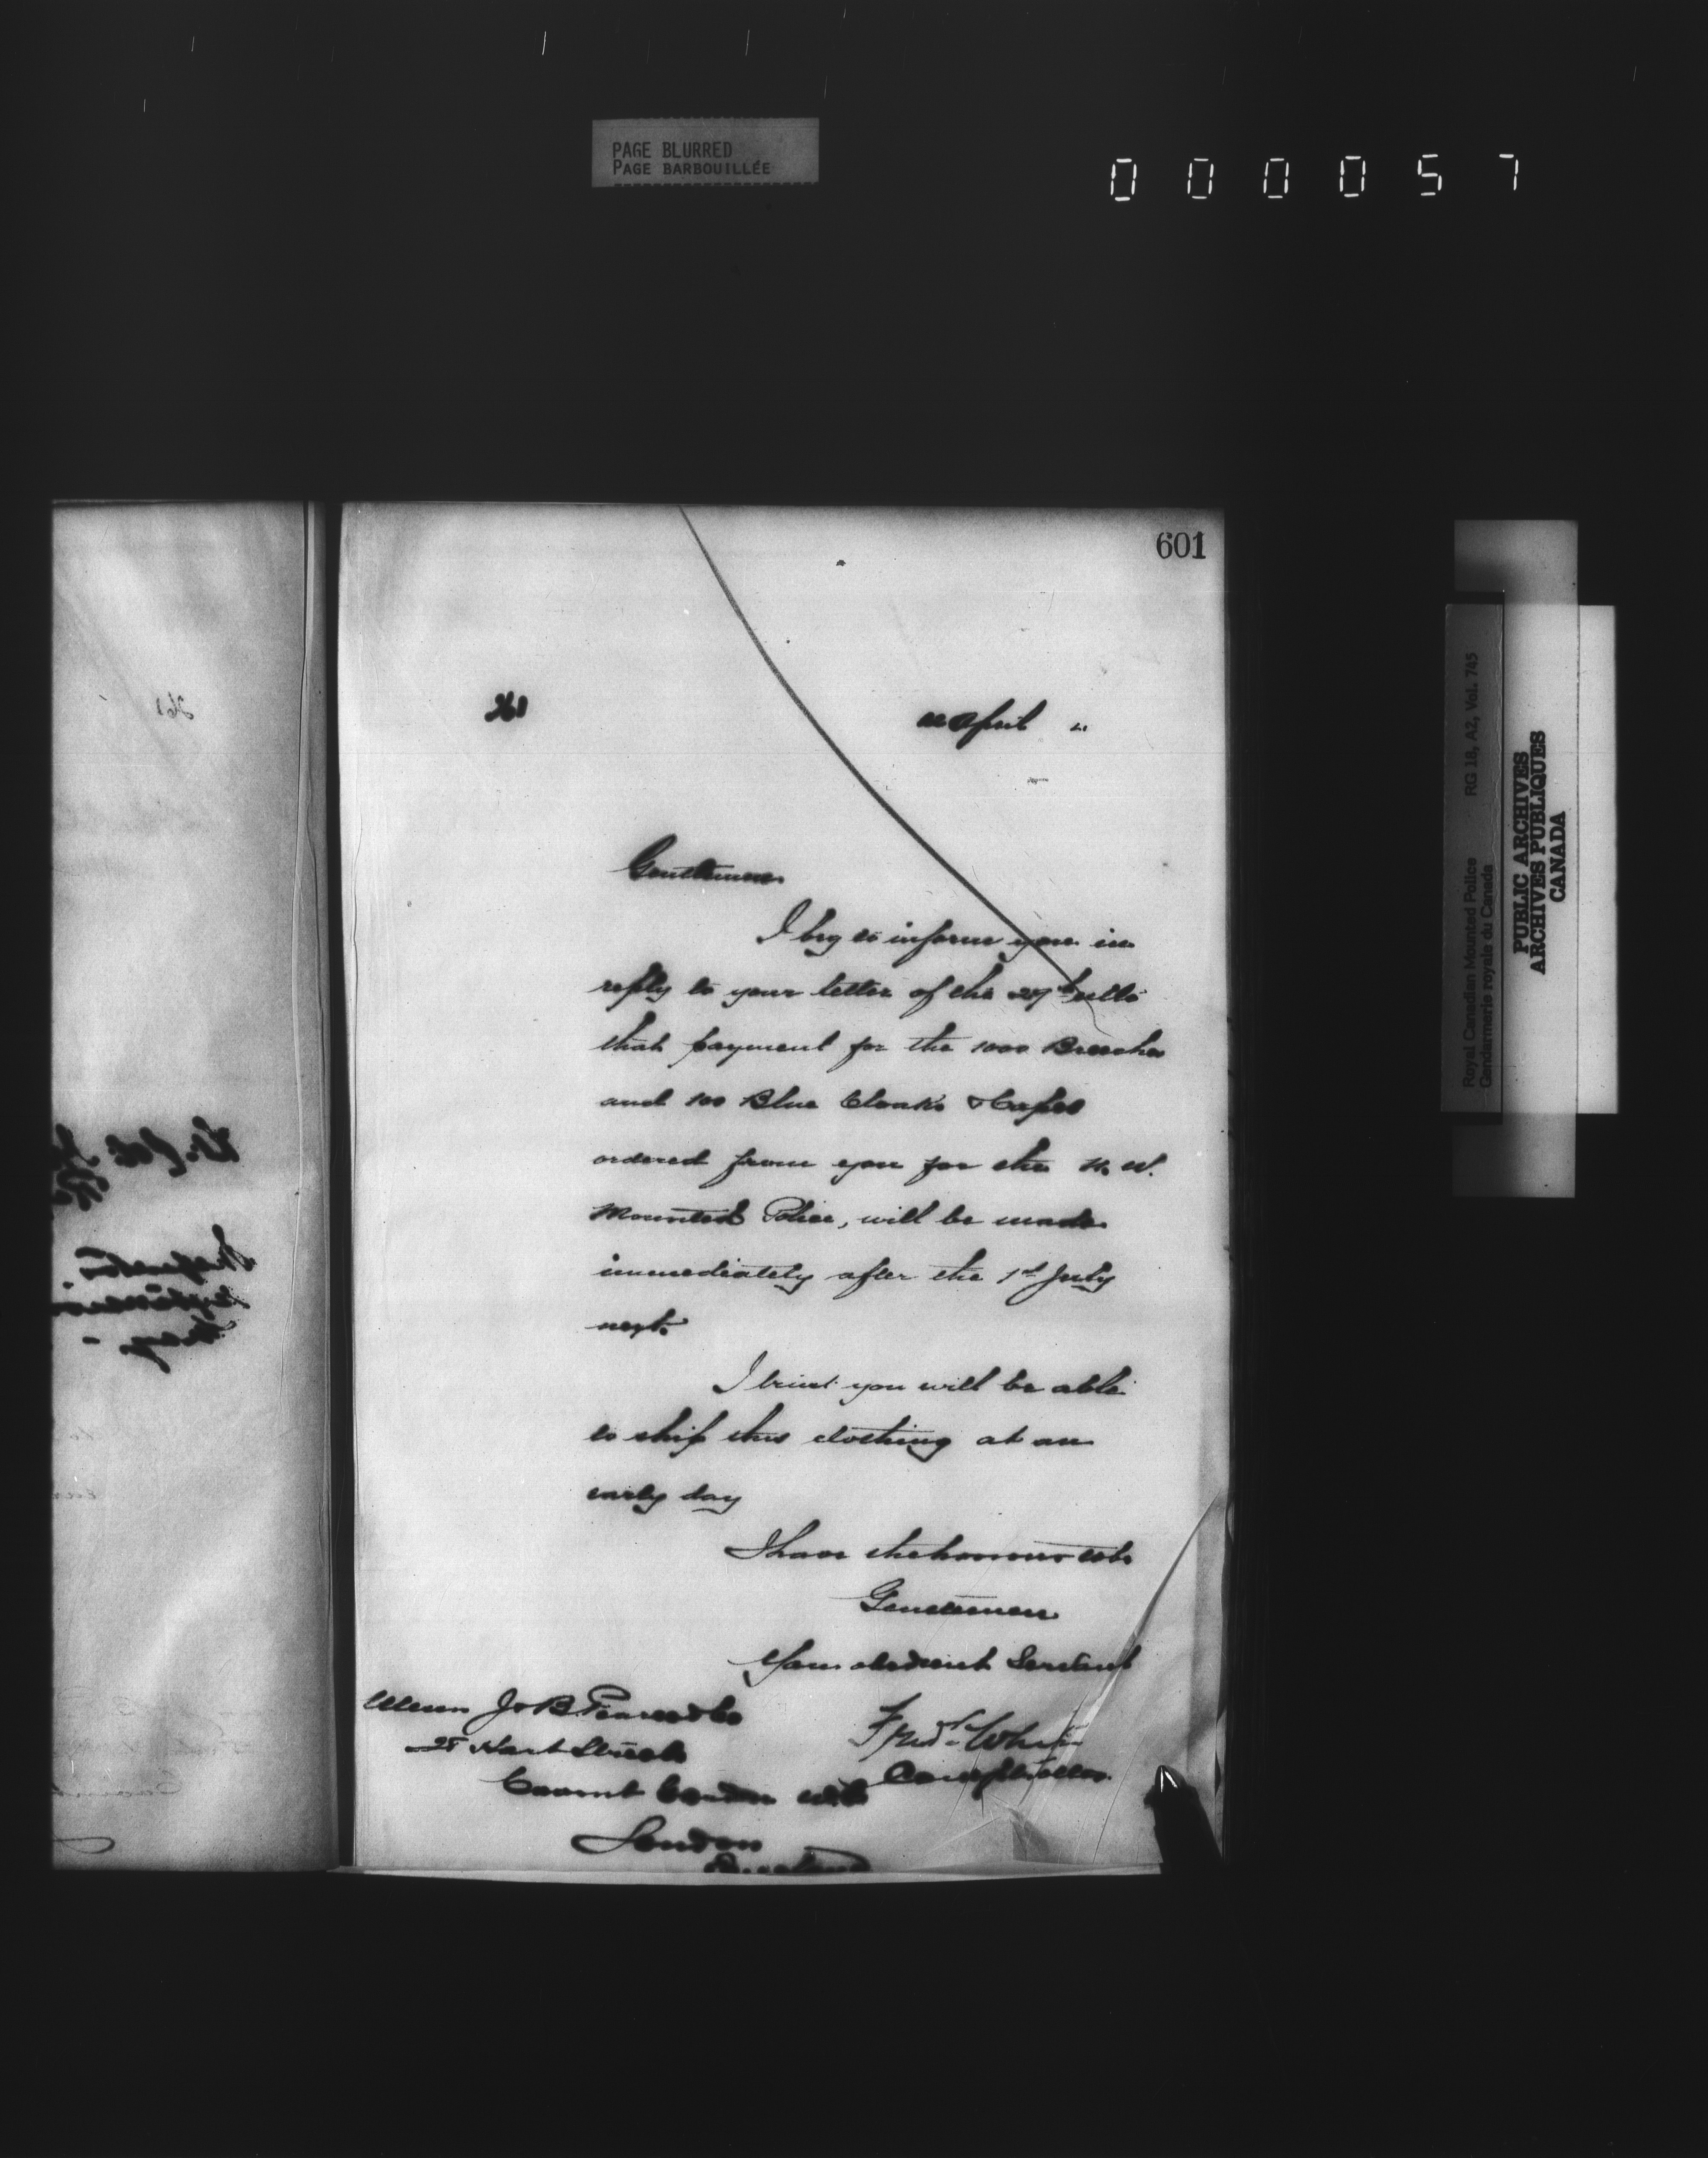 PAGE BLURRED
PAGE BARBOUILLÉE
000057
601
261
April "
Gentlemen
I beg to inform you in
reply to your letter of the 27th ulto
that payment for the 1000 Breeches
and 100 Blue Cloaks & Capes
ordered from you for the N. W.
Mounted Police, will be made
immediately after the 1st July
next.
I trust you will be able
to ship this clothing at an
early day
I have the honour to be
Gentlemen
Your obedient Servant
Fredk White
Comptroller
Messrs J & B Pearse & Co
28 Hart Street
Covent Garden W.C.
London
England
Royal Canadian Mounted Police RG 18, A2, Vol. 745
Gendarmerie royale du Canada
PUBLIC ARCHIVES
ARCHIVES PUBLIQUES
CANADA